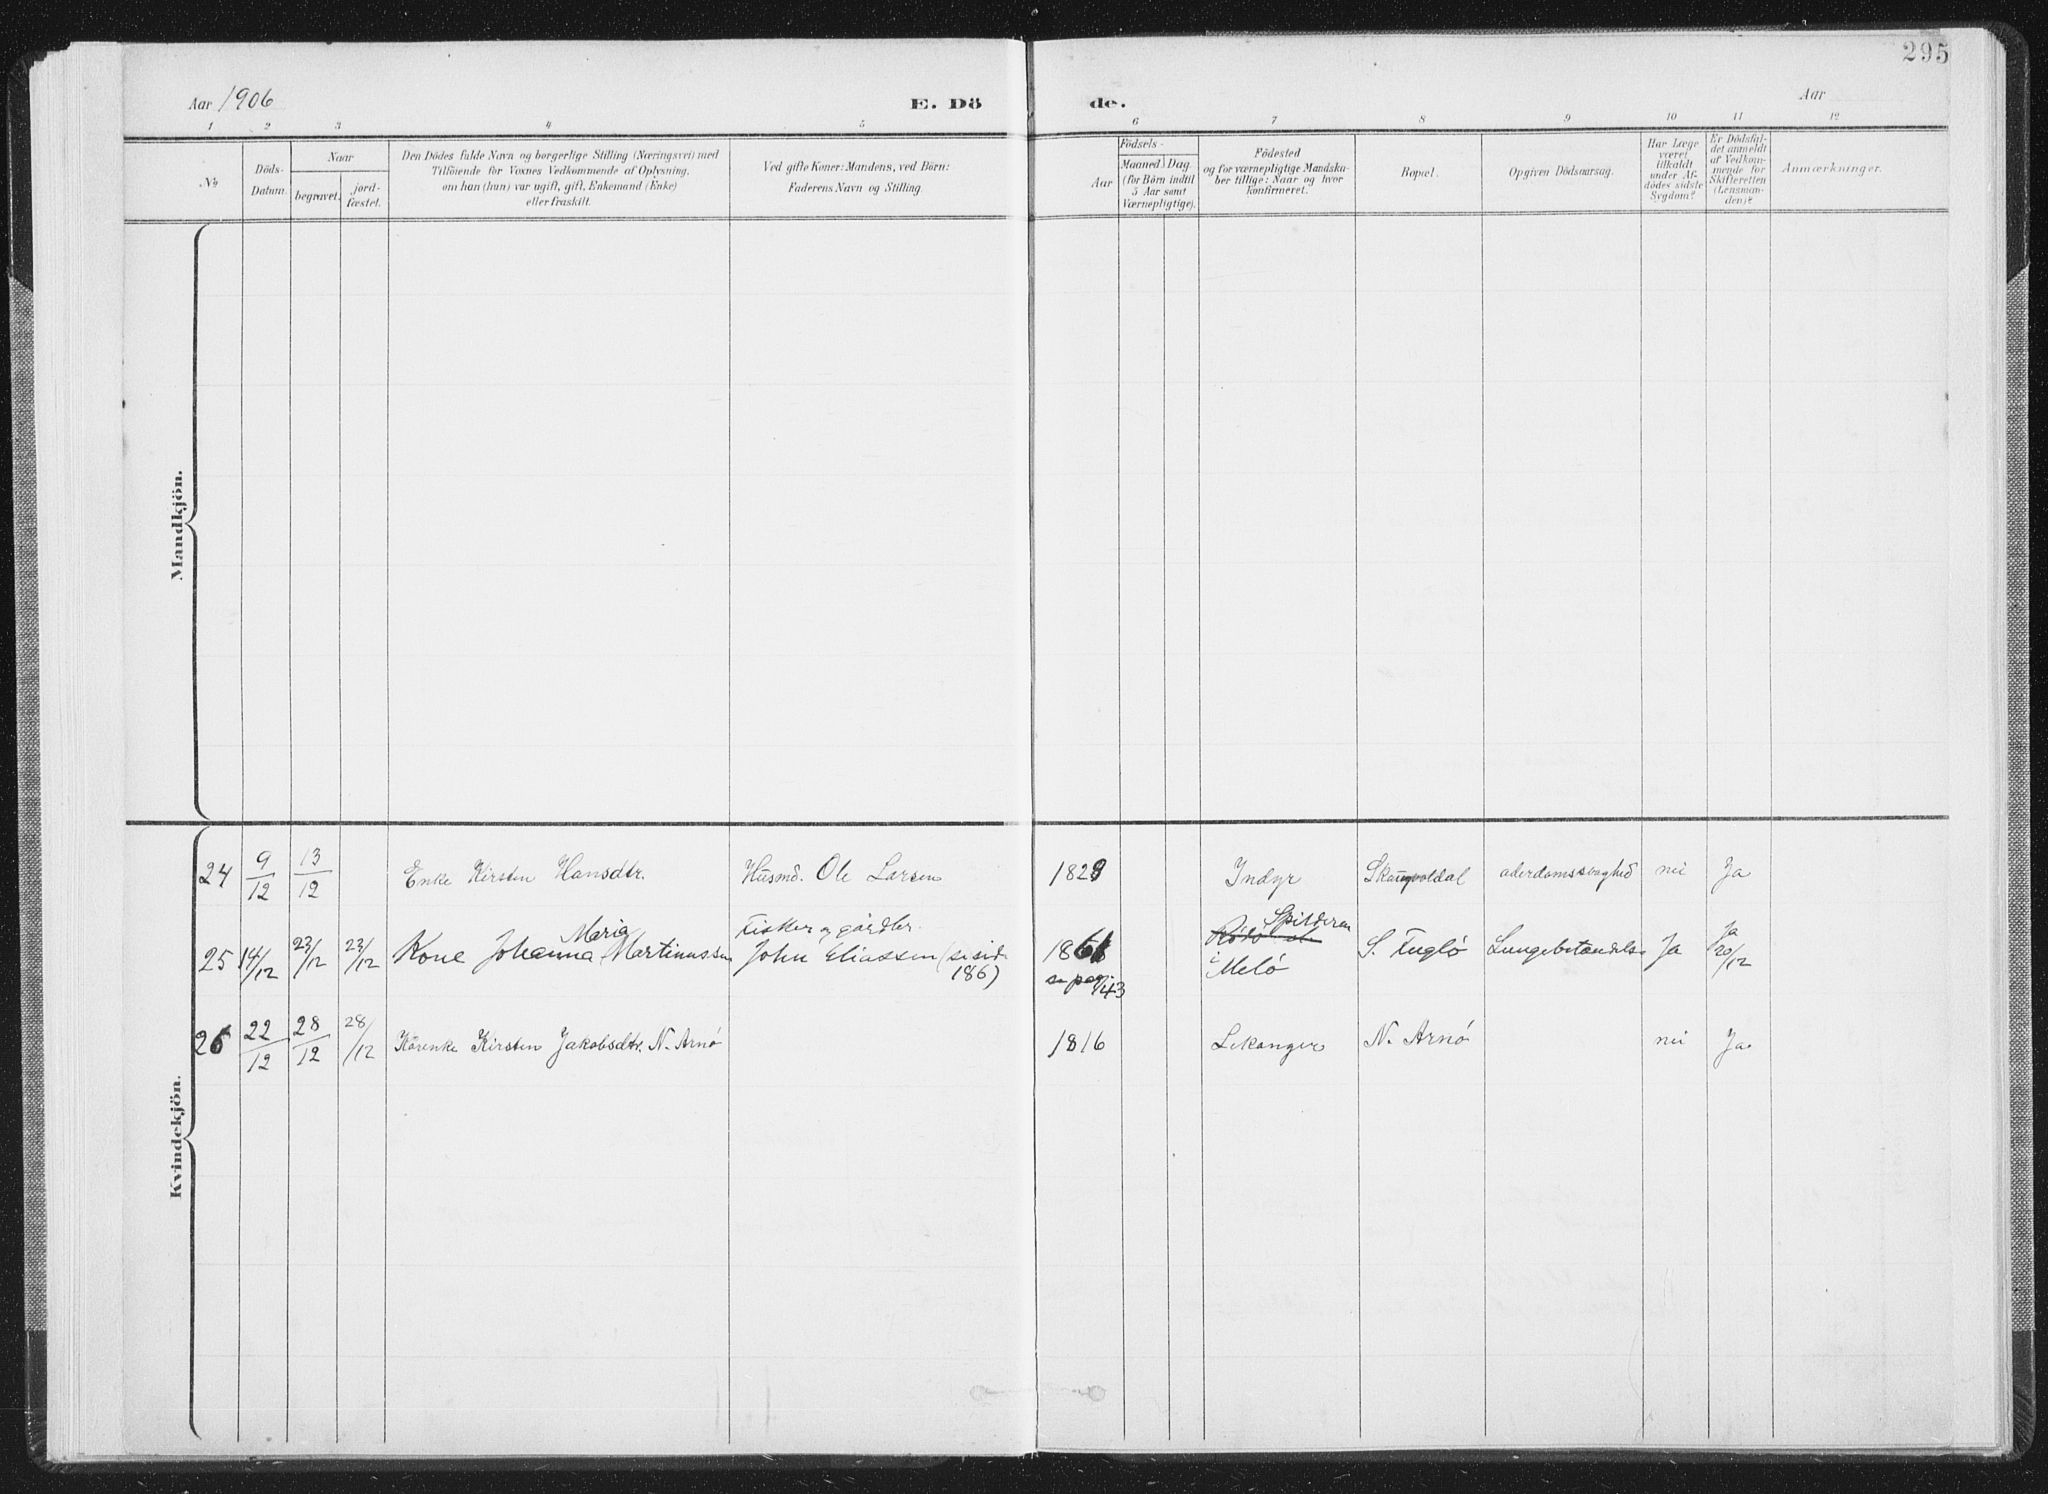 295
Aar 1906
E. Dö
de.
Aar
1 2 3 4 5 6 7 8 9 10 11 12
No
Döds-
Datum.
Naar
begravet.
jord-
fæstet.
Den Dödes fulde Navn og borgerlige Stilling (Næringsvei) med
Tilföiende for Voxnes Vedkommende af Oplysning,
om han (hun) var ugift, gift, Enkemand (Enke)
eller fraskilt.
Ved gifte Koner: Mandens, ved Börn:
Faderens Navn og Stilling.
Födsels-
Aar
Maaned
Dag
(for Börn indtil
5 Aar samt
Værnepligtige).
Födested
og for værnepligtige Mandska-
ber tillige: Naar og hvor
konfirmeret.
Bopæl.
Opgiven Dödsaarsag.
Har Læge
været
tilkaldt
under Af-
dödes sidste
Sygdom?
Er Dödsfal-
det anmeldt
af Vedkom-
mende for
Skifteretten
(Lensman-
den)?
Anmærkninger.
Mandkjön.
Kvindekjön.
24 9/12 13/12 Enke Kirsten Hansdtr. Husmd. Ole Larsen 1828 Indyr Skaugvoldal alderdomssvaghed nei Ja
25 14/12 23/12 23/12 Kone Johanna Maria Martinussen Fisker og gårdbr.
John Eliassen (se side
186)
1861
se pag. 143
Rödö
Spilderen
i Melö
S. Fuglö Lungebetændelse Ja Ja
20/12
26 22/12 28/12 28/12 Kårenke Kirsten Jakobsdtr. N. Arnö 1816 Lekanger N. Arnö nei Ja